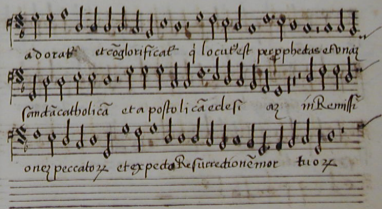 adorat̃ et cõglorificat̃ q̃ locutˀest per ꝓphetas et vnaȝ
sanctã catholicã et apostolicã eclesi aȝ in Remissi
oneȝ peccatoꝝ et expecto Resurrectionẽ mor tuoꝝ